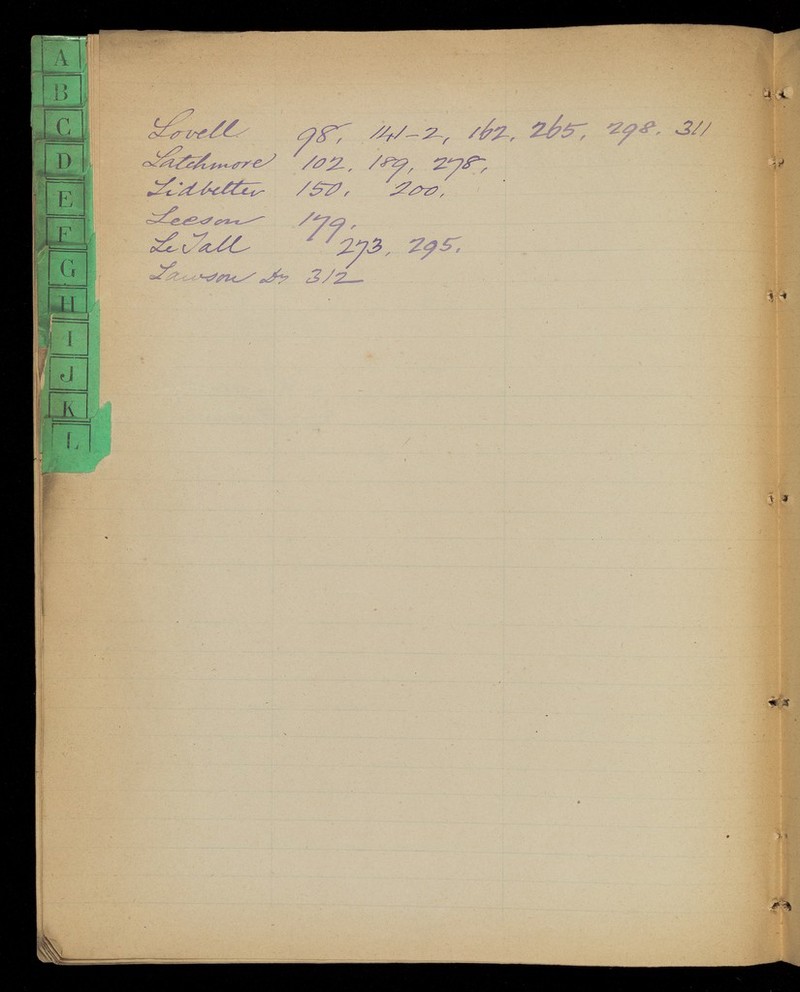 A
B
C
D
E
F
G
H
I
J
K
L
Lovell 98, 141-2, 162, 265, 298, 311
Latchmore 102, 189, 278,
Lidbetter 150, 200,
Leeson 179,
Le Tall 273, 295.
Lawson Dr 312